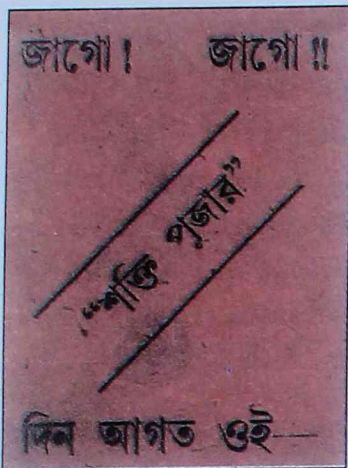 জাগো! জাগো!!
“শক্তি পূজার”
দিন আগত ওই—